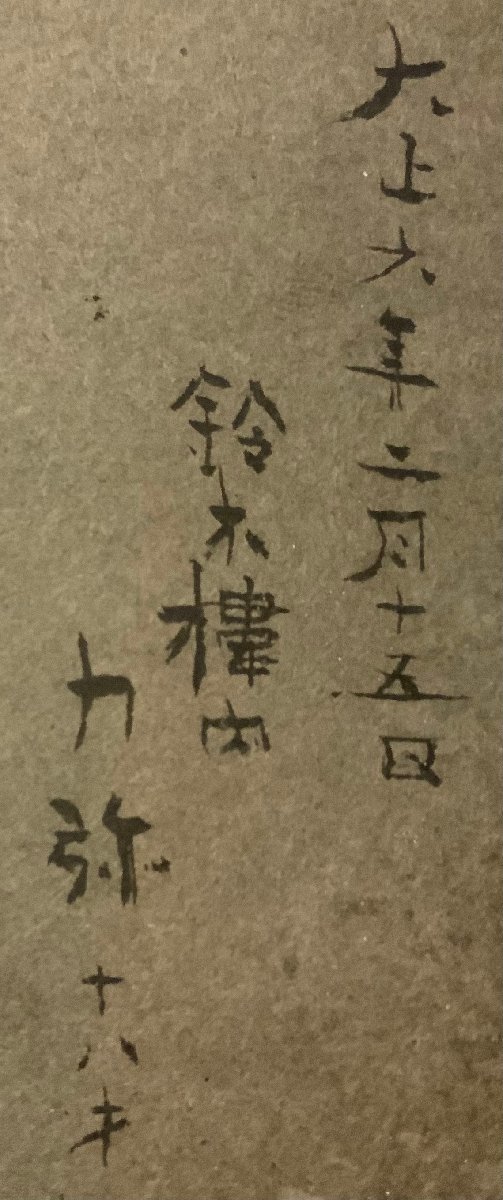 大正六年二月十五日
鈴木樓内
力弥十八才